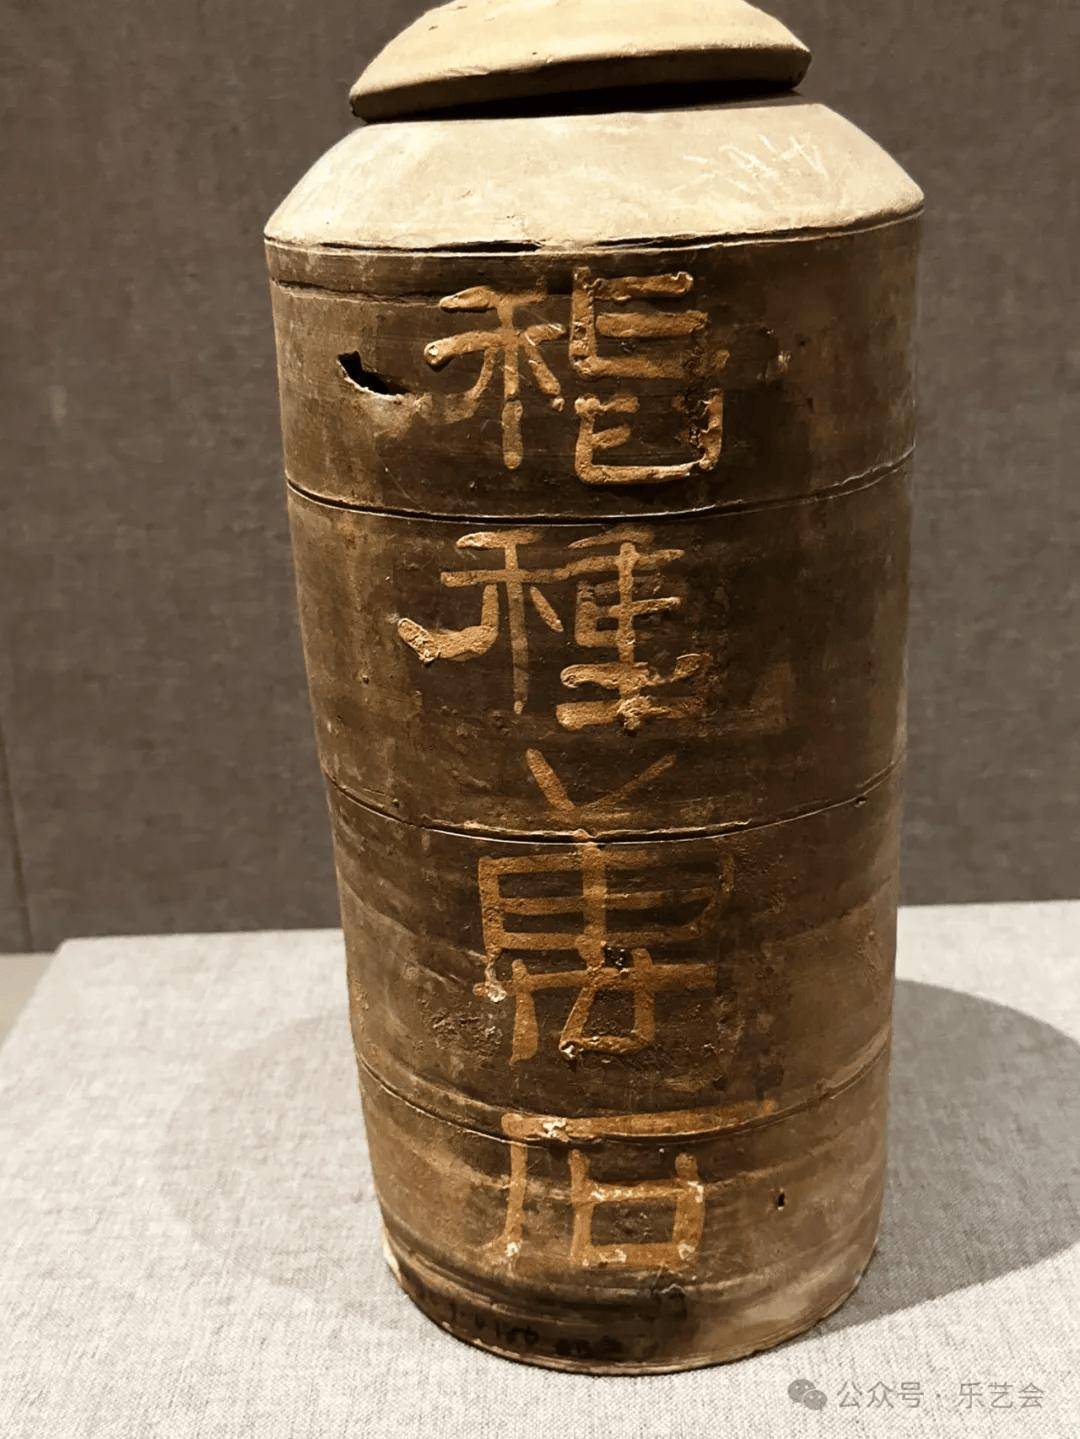 稻
種
萬
石
公众号 · 乐艺会